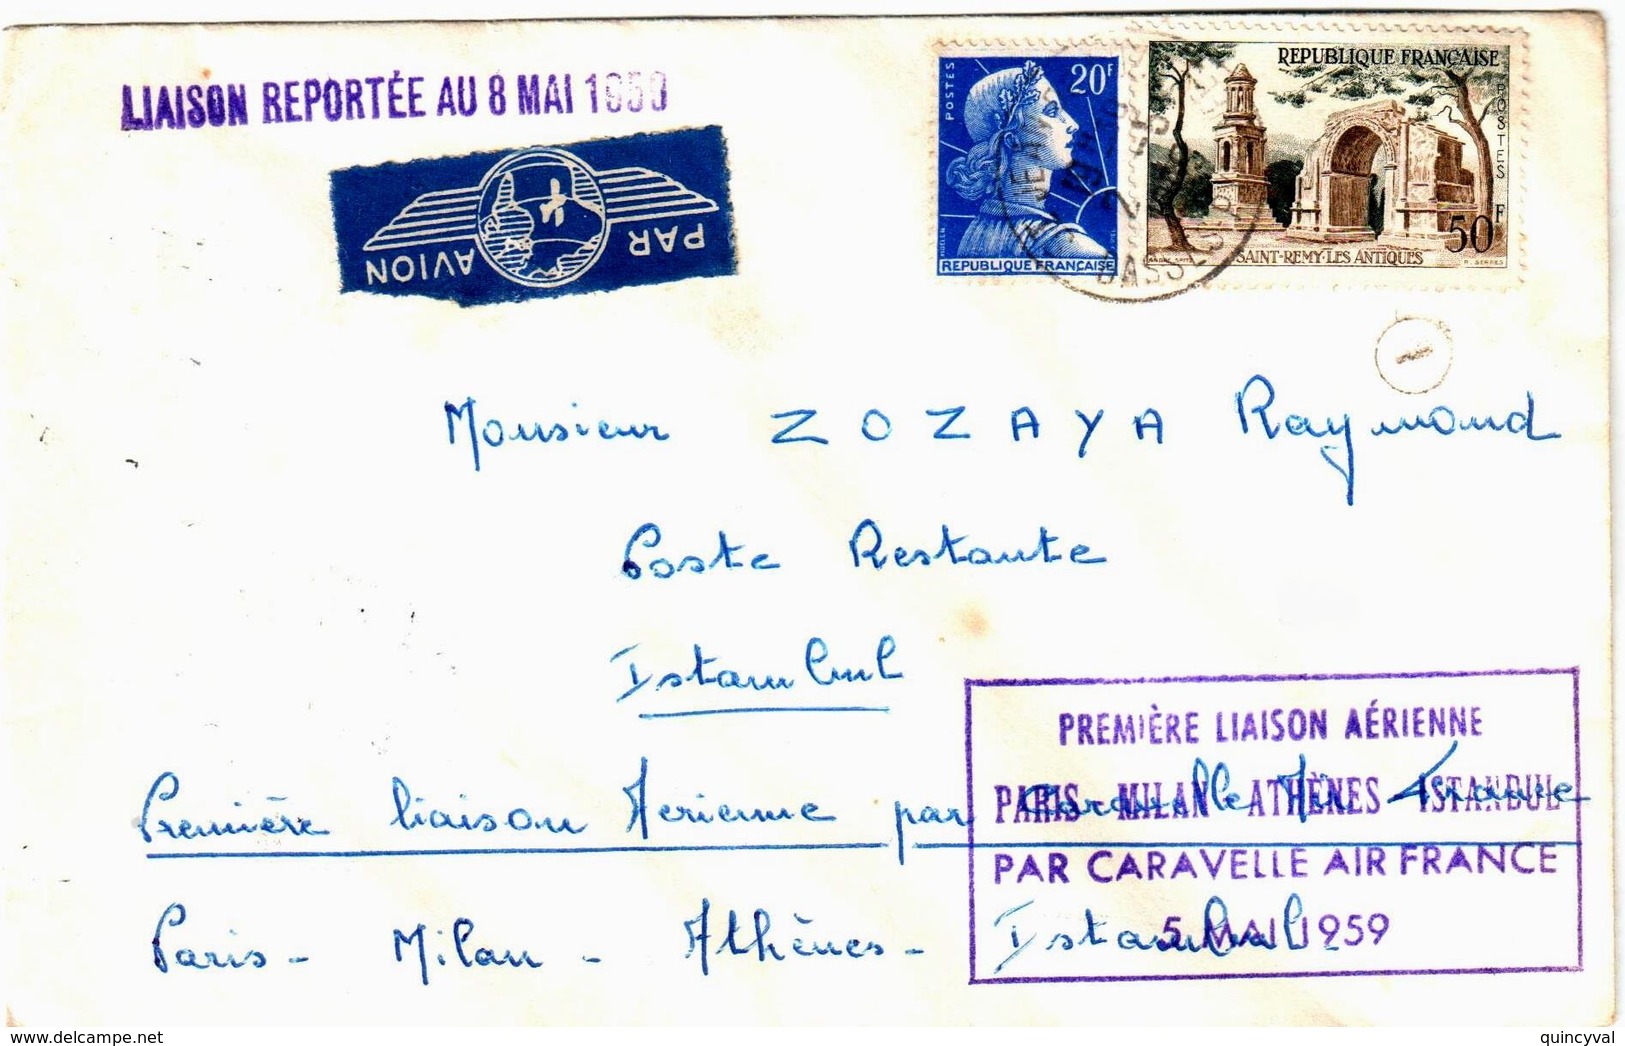 LIAISON REPORTÉE AU 8 MAI 1959
PAR AVION
POSTES
20F
REPUBLIQUE FRANÇAISE
REPUBLIQUE FRANÇAISE
POSTES
50F
SAINT-REMY-LES ANTIQUES
Monsieur ZOZAYA Raymond
Poste Restante
Istanbul
Première liaison Aérienne par Caravelle Air France
Paris - Milan - Athènes - Istanbul
PREMIÈRE LIAISON AÉRIENNE
PARIS MILAN ATHÈNES ISTANBUL
PAR CARAVELLE AIR FRANCE
5 MAI 1959
quincyval